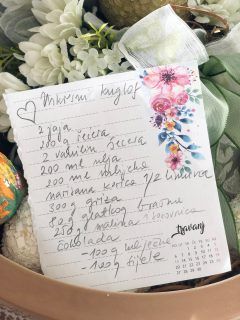 Mramorni kuglof
2 jaja
200 g šećera
2 vanilin šećera
200 ml ulja
200 ml mlijeka
naribana korica 1/2 limuna
300 g griza
80 g glatkog brašna
250 g malina
čokolada
- 100 g mliječne
- 100 g bijele
travanj